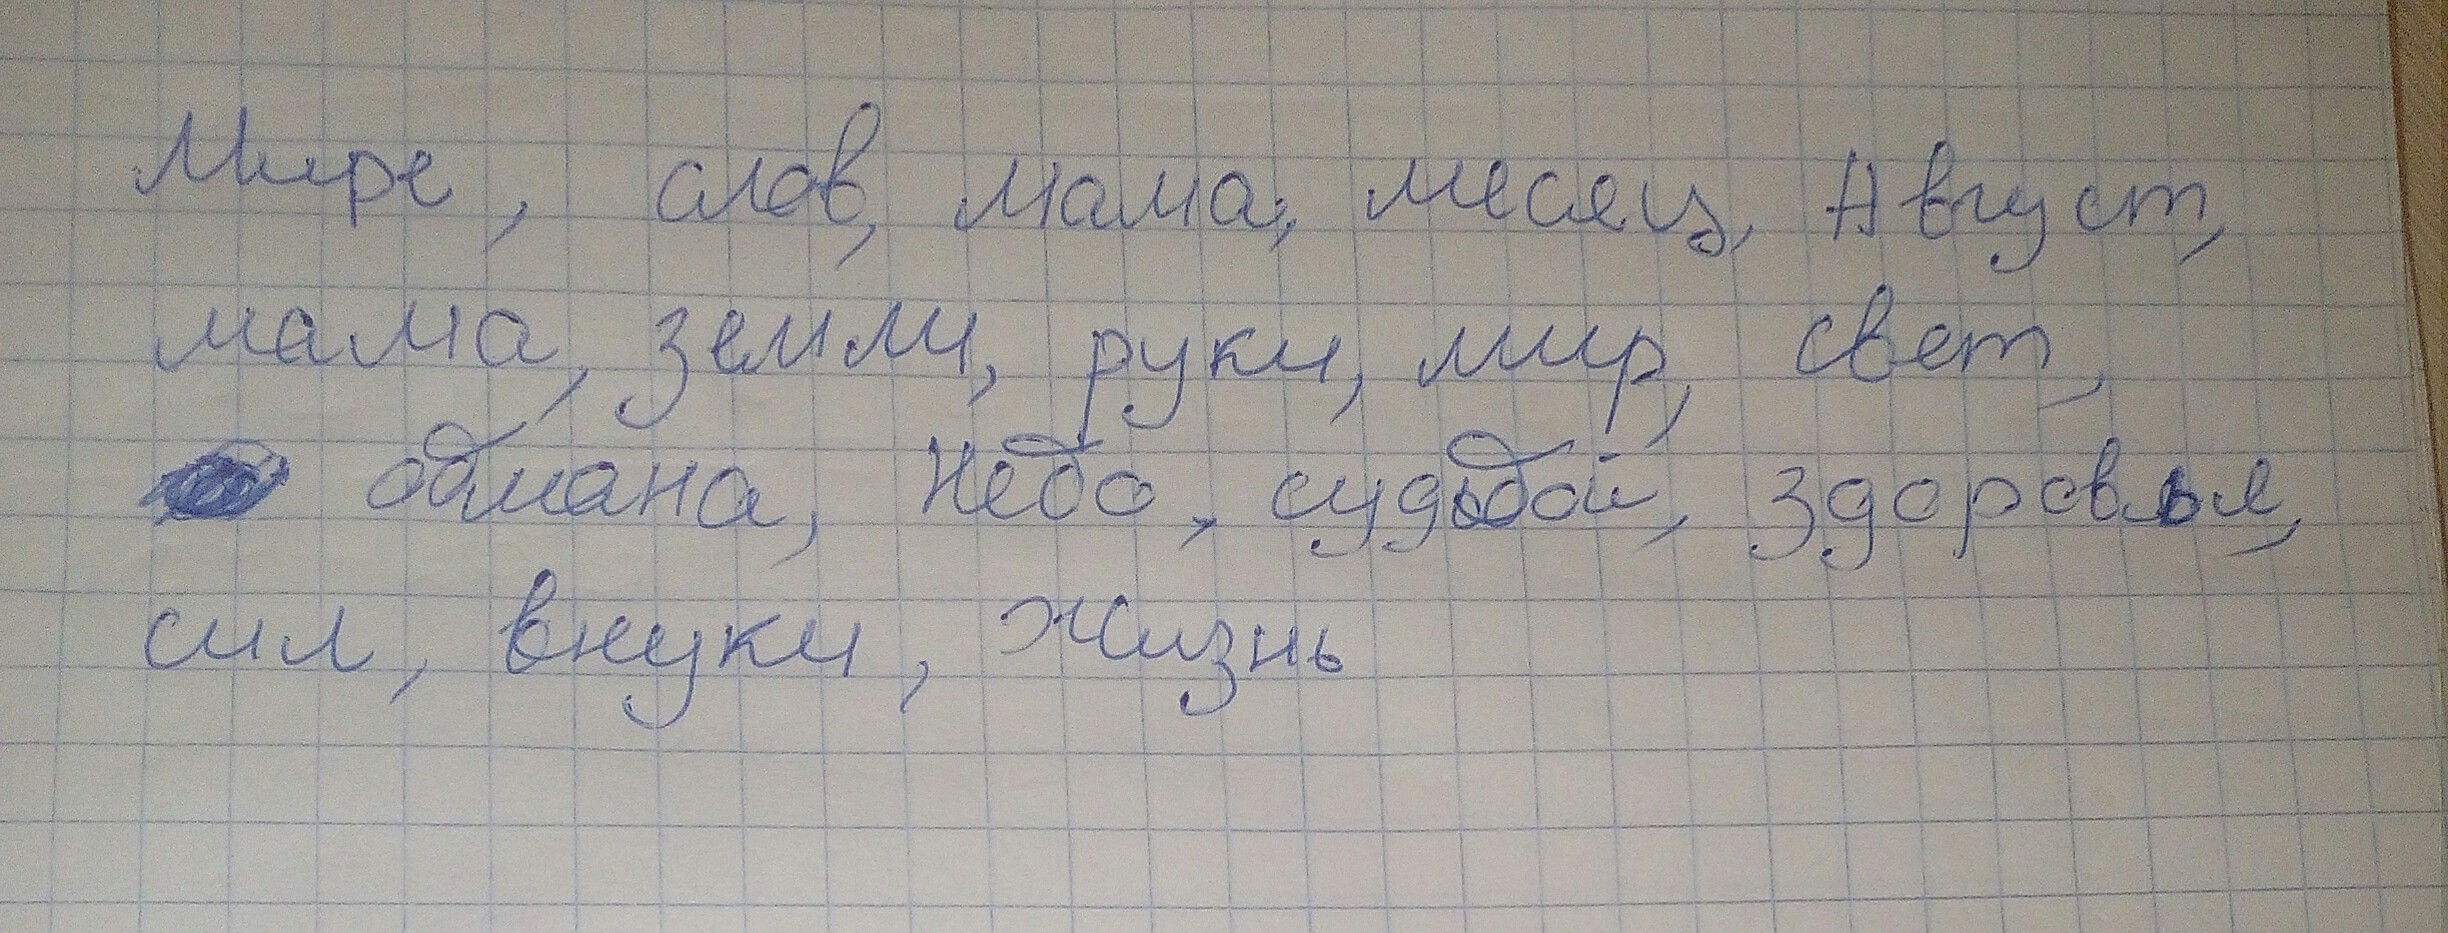 Мире, слов, мама, месяц, Август,
мама, земли, руки, мир, свет,
обмана, Небо, судьбой, здоровья,
сил, внуки, жизнь